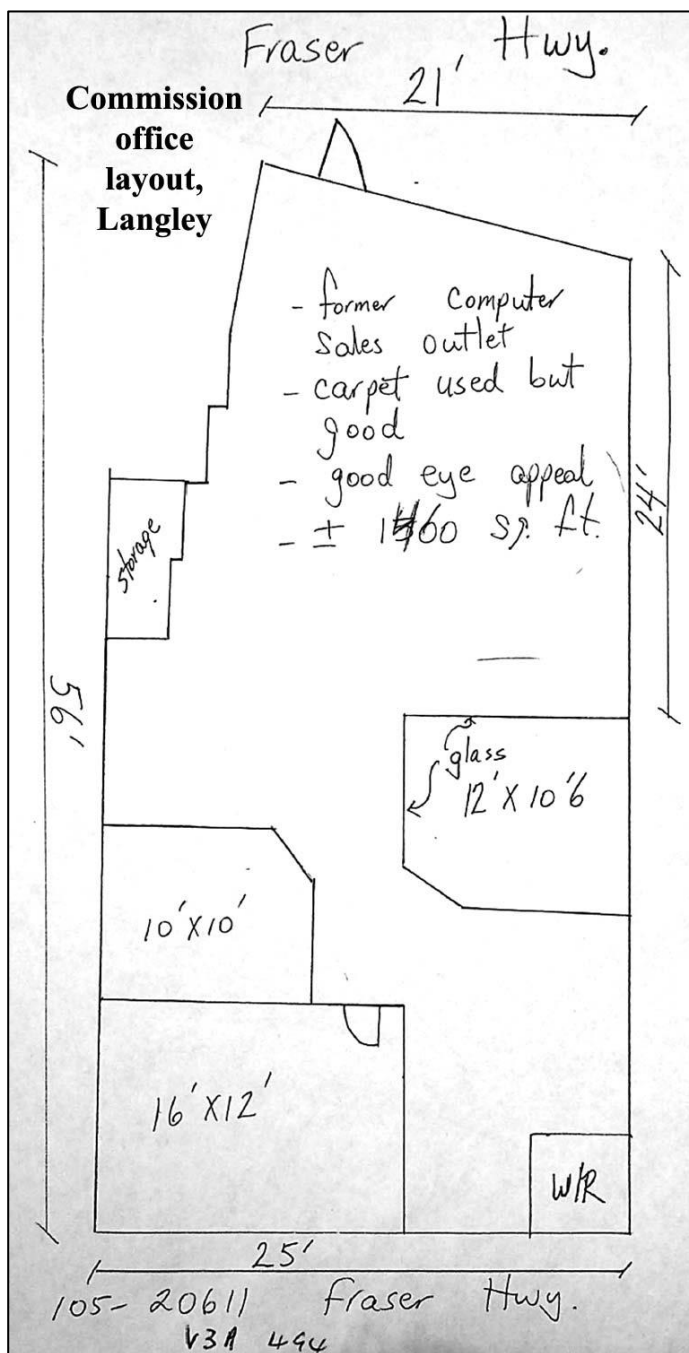 Fraser Hwy.
21'
Commission
office
layout,
Langley
- former computer
sales outlet
- carpet used but
good
- good eye appeal
- ± 1460 sq. ft.
24'
storage
56'
glass
12' X 10'6
10' X 10'
16' X 12'
W/R
25'
105- 20611 Fraser Hwy.
V3A 4G4